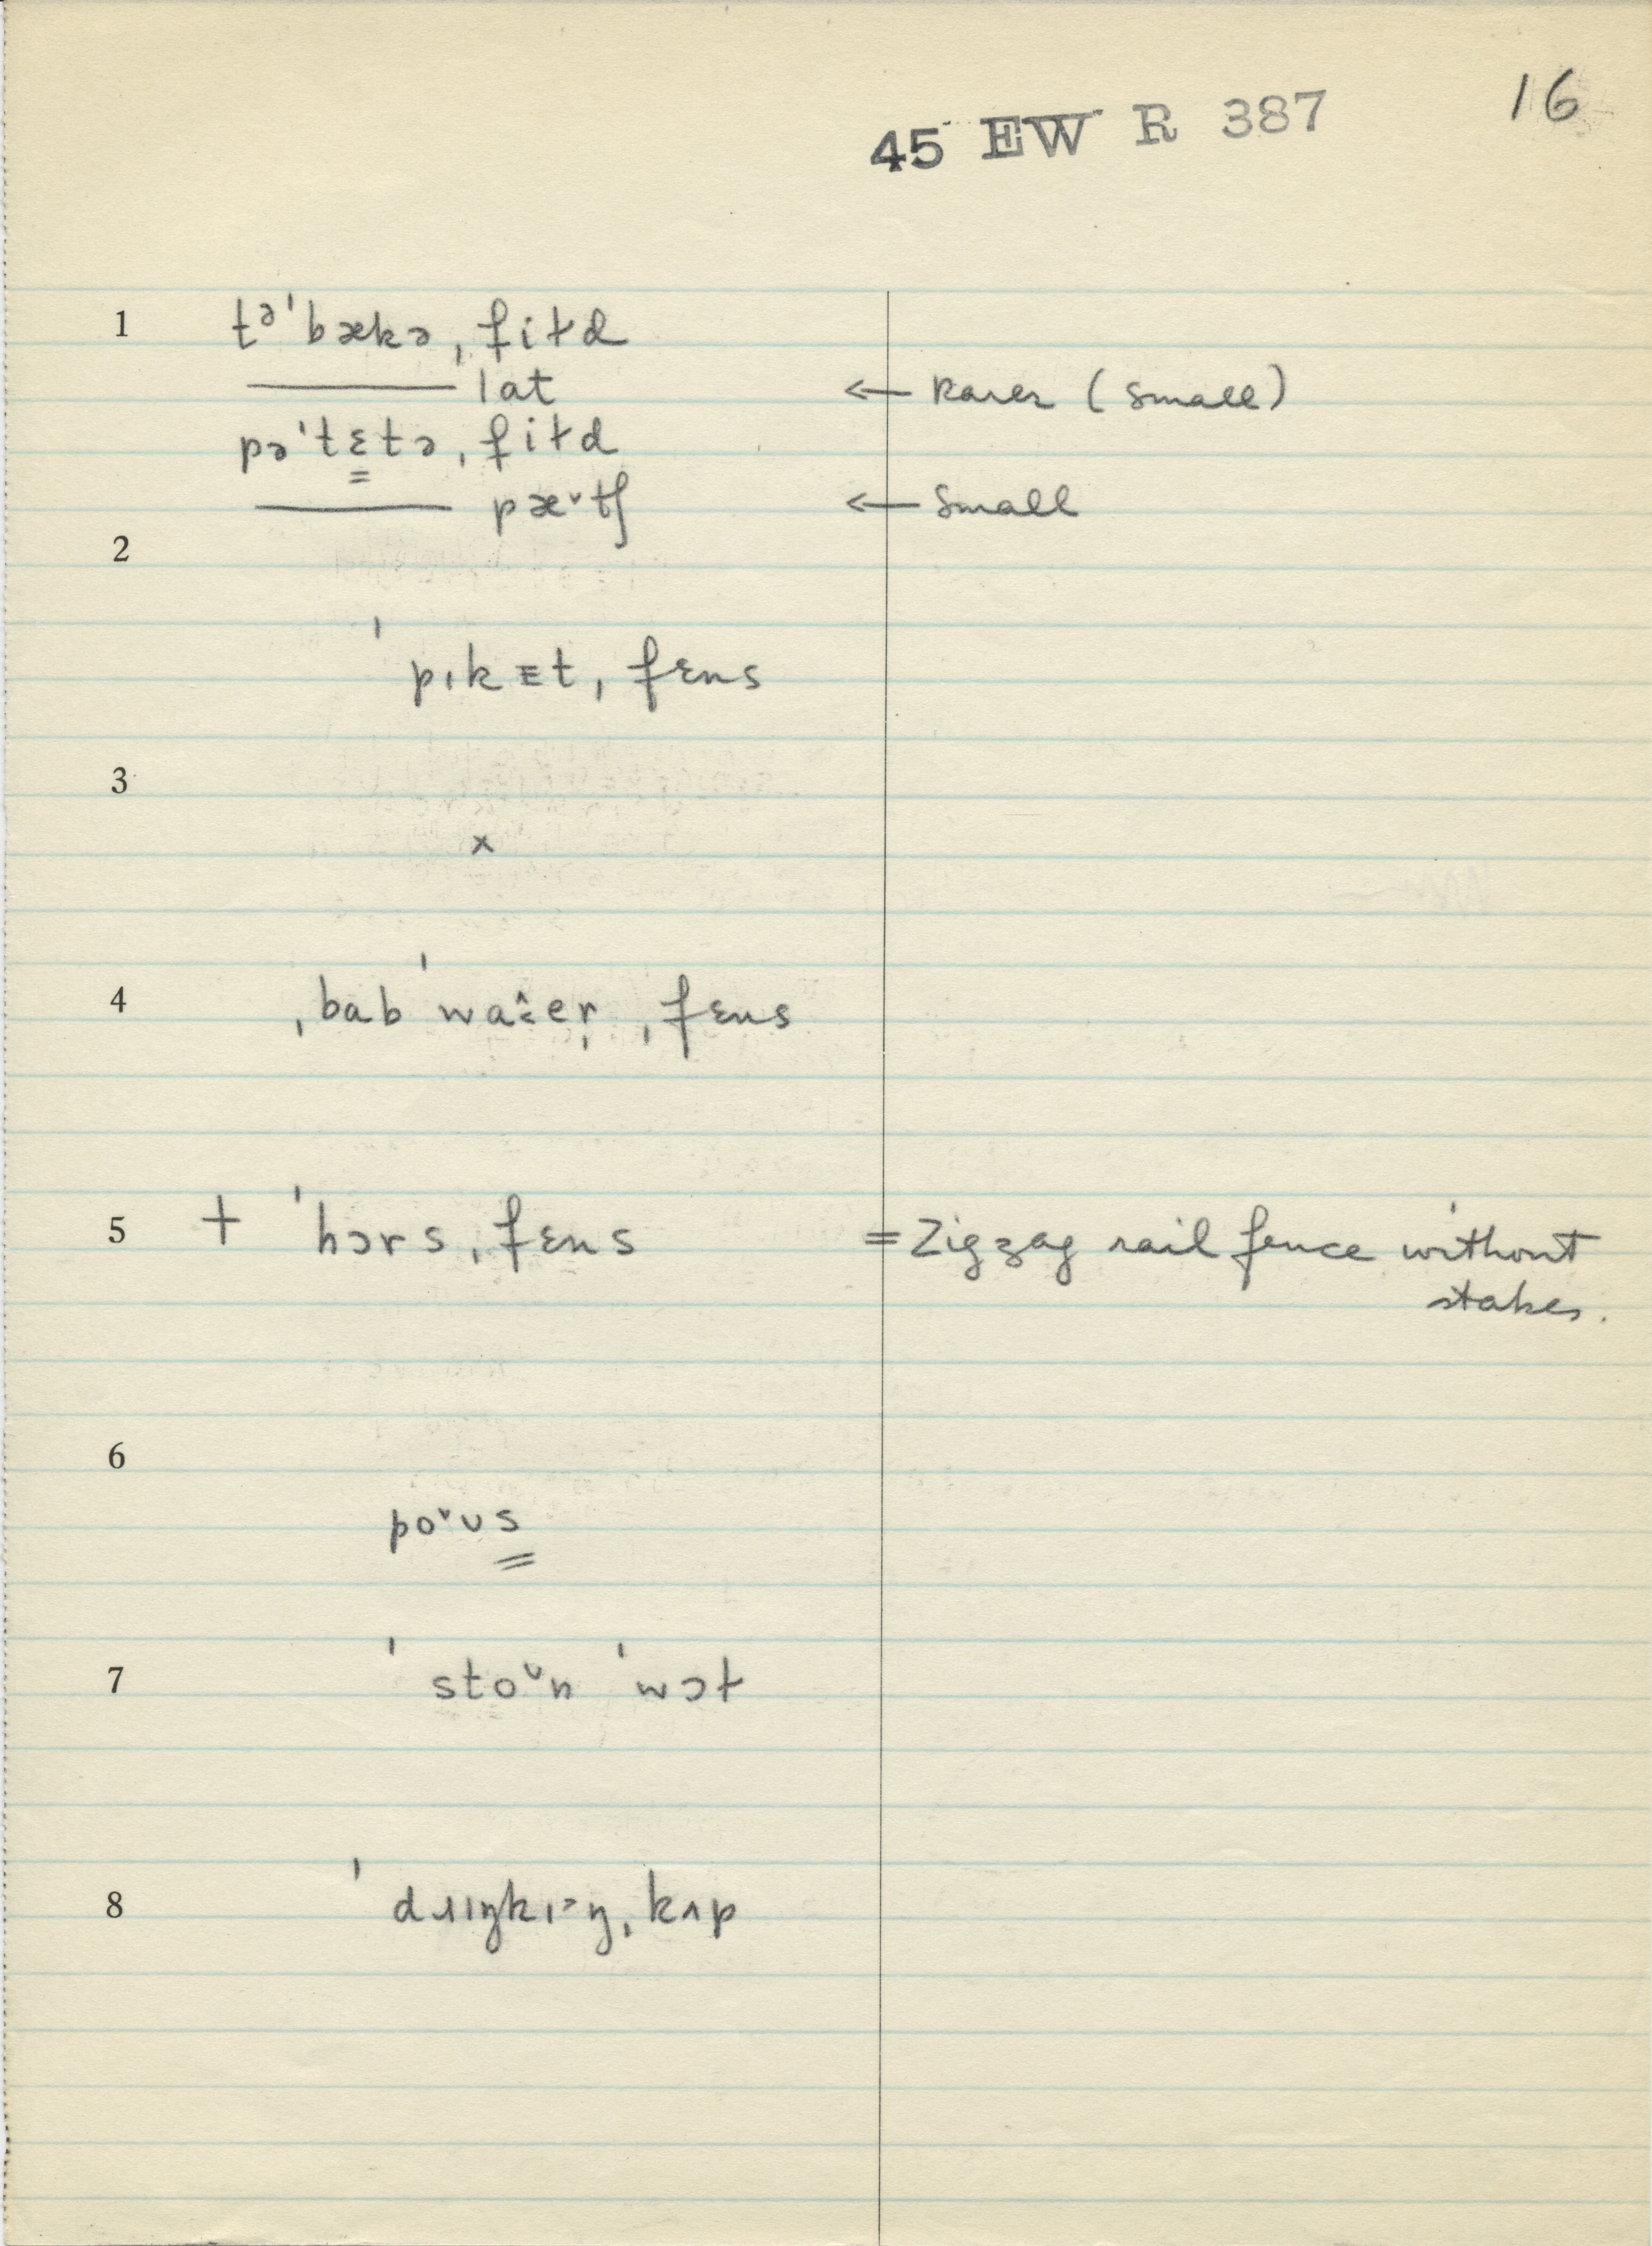 16
45 EW R 387
1 tᵊˈbækə ˌfiɫd
——— lat ← Rarer (small)
pəˈtɛ̳tə ˌfiɫd
——— pæ˅tʃ ← Small
2
ˈpɪkᴇt ˌfɛns
3
x
4 ˌbabˈwaːer ˌfɛns
5 + ˈhɔrs ˌfɛns = Zigzag rail fence without
stakes.
6
po˅ʊs̳
7 ˈsto˅n ˈwɔɫ
8 ˈdɹɪŋkɪ˃ŋ ˌkʌp